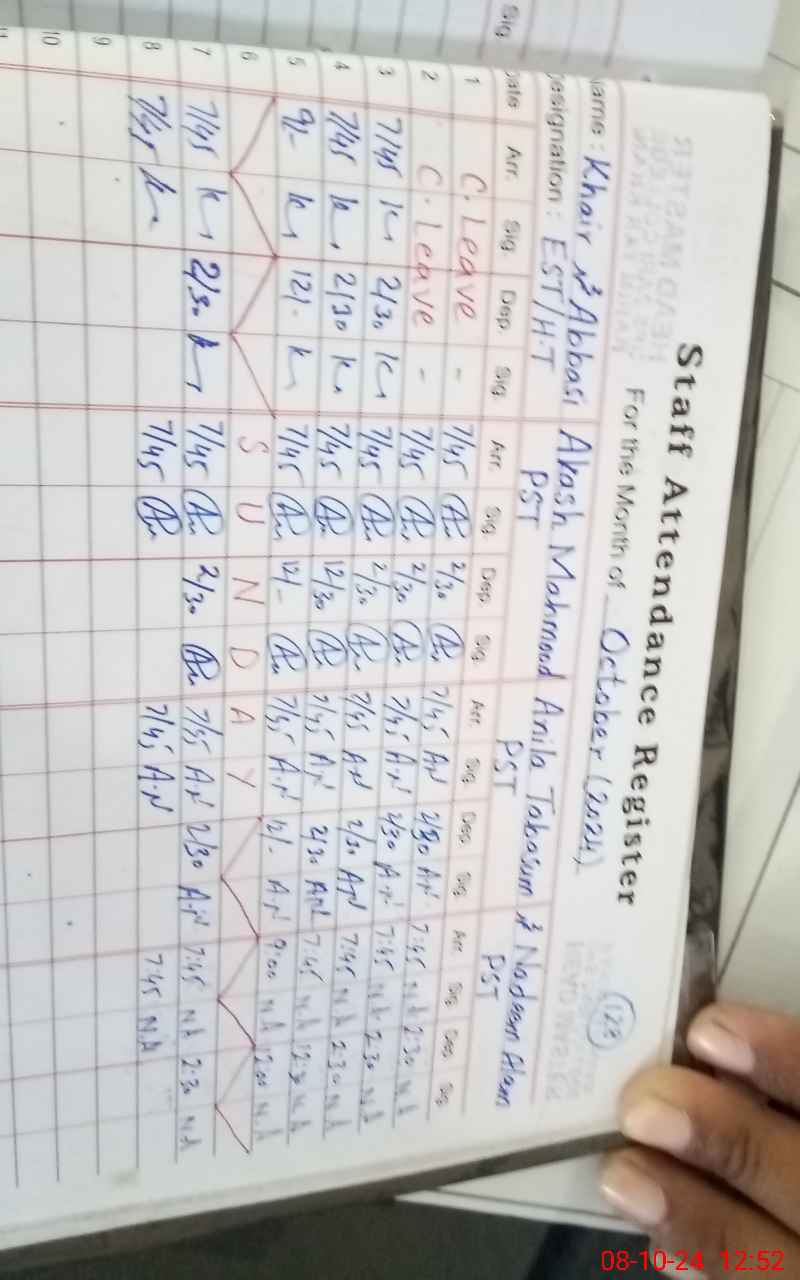 Staff Attendance Register
For the Month of October (2024)
128
Name : Khair Abbasi Akash Mahmood Anila Tabasum Nadeem Alam
Designation : EST/H.T PST PST PST
Date Arr. Sig. Dep. Sig. Arr. Sig. Dep. Sig. Arr. Sig. Dep. Sig. Arr. Sig. Dep. Sig.
1 C. Leave - 7/45 2/30 7/45 AN 2/30 AN 7:45 NA 2:30 NA
2 C. Leave - 7/45 2/30 7/45 A.N 2/30 A.N 7:45 NA 2:30 NA
3 7/45 2/30 7/45 2/30 7/45 AN 2/30 AN 7:45 NA 2:30 NA
4 7/45 2/30 7/45 12/30 7/45 A.N 2/30 AN 7:45 N.A 12:30 N.A
5 9/- 12/- 7/45 12/- 7/45 A.N 12/- A.N 9:00 N.A 12:00 N.A
6 SUNDAY
7 7/45 2/30 7/45 2/30 7/45 A.N 2/30 A.N 7:45 NA 2:30 NA
8 7/45 7/45 7/45 A.N 7:45 N.A
9
10
11
Sig
08-10-24 12:52